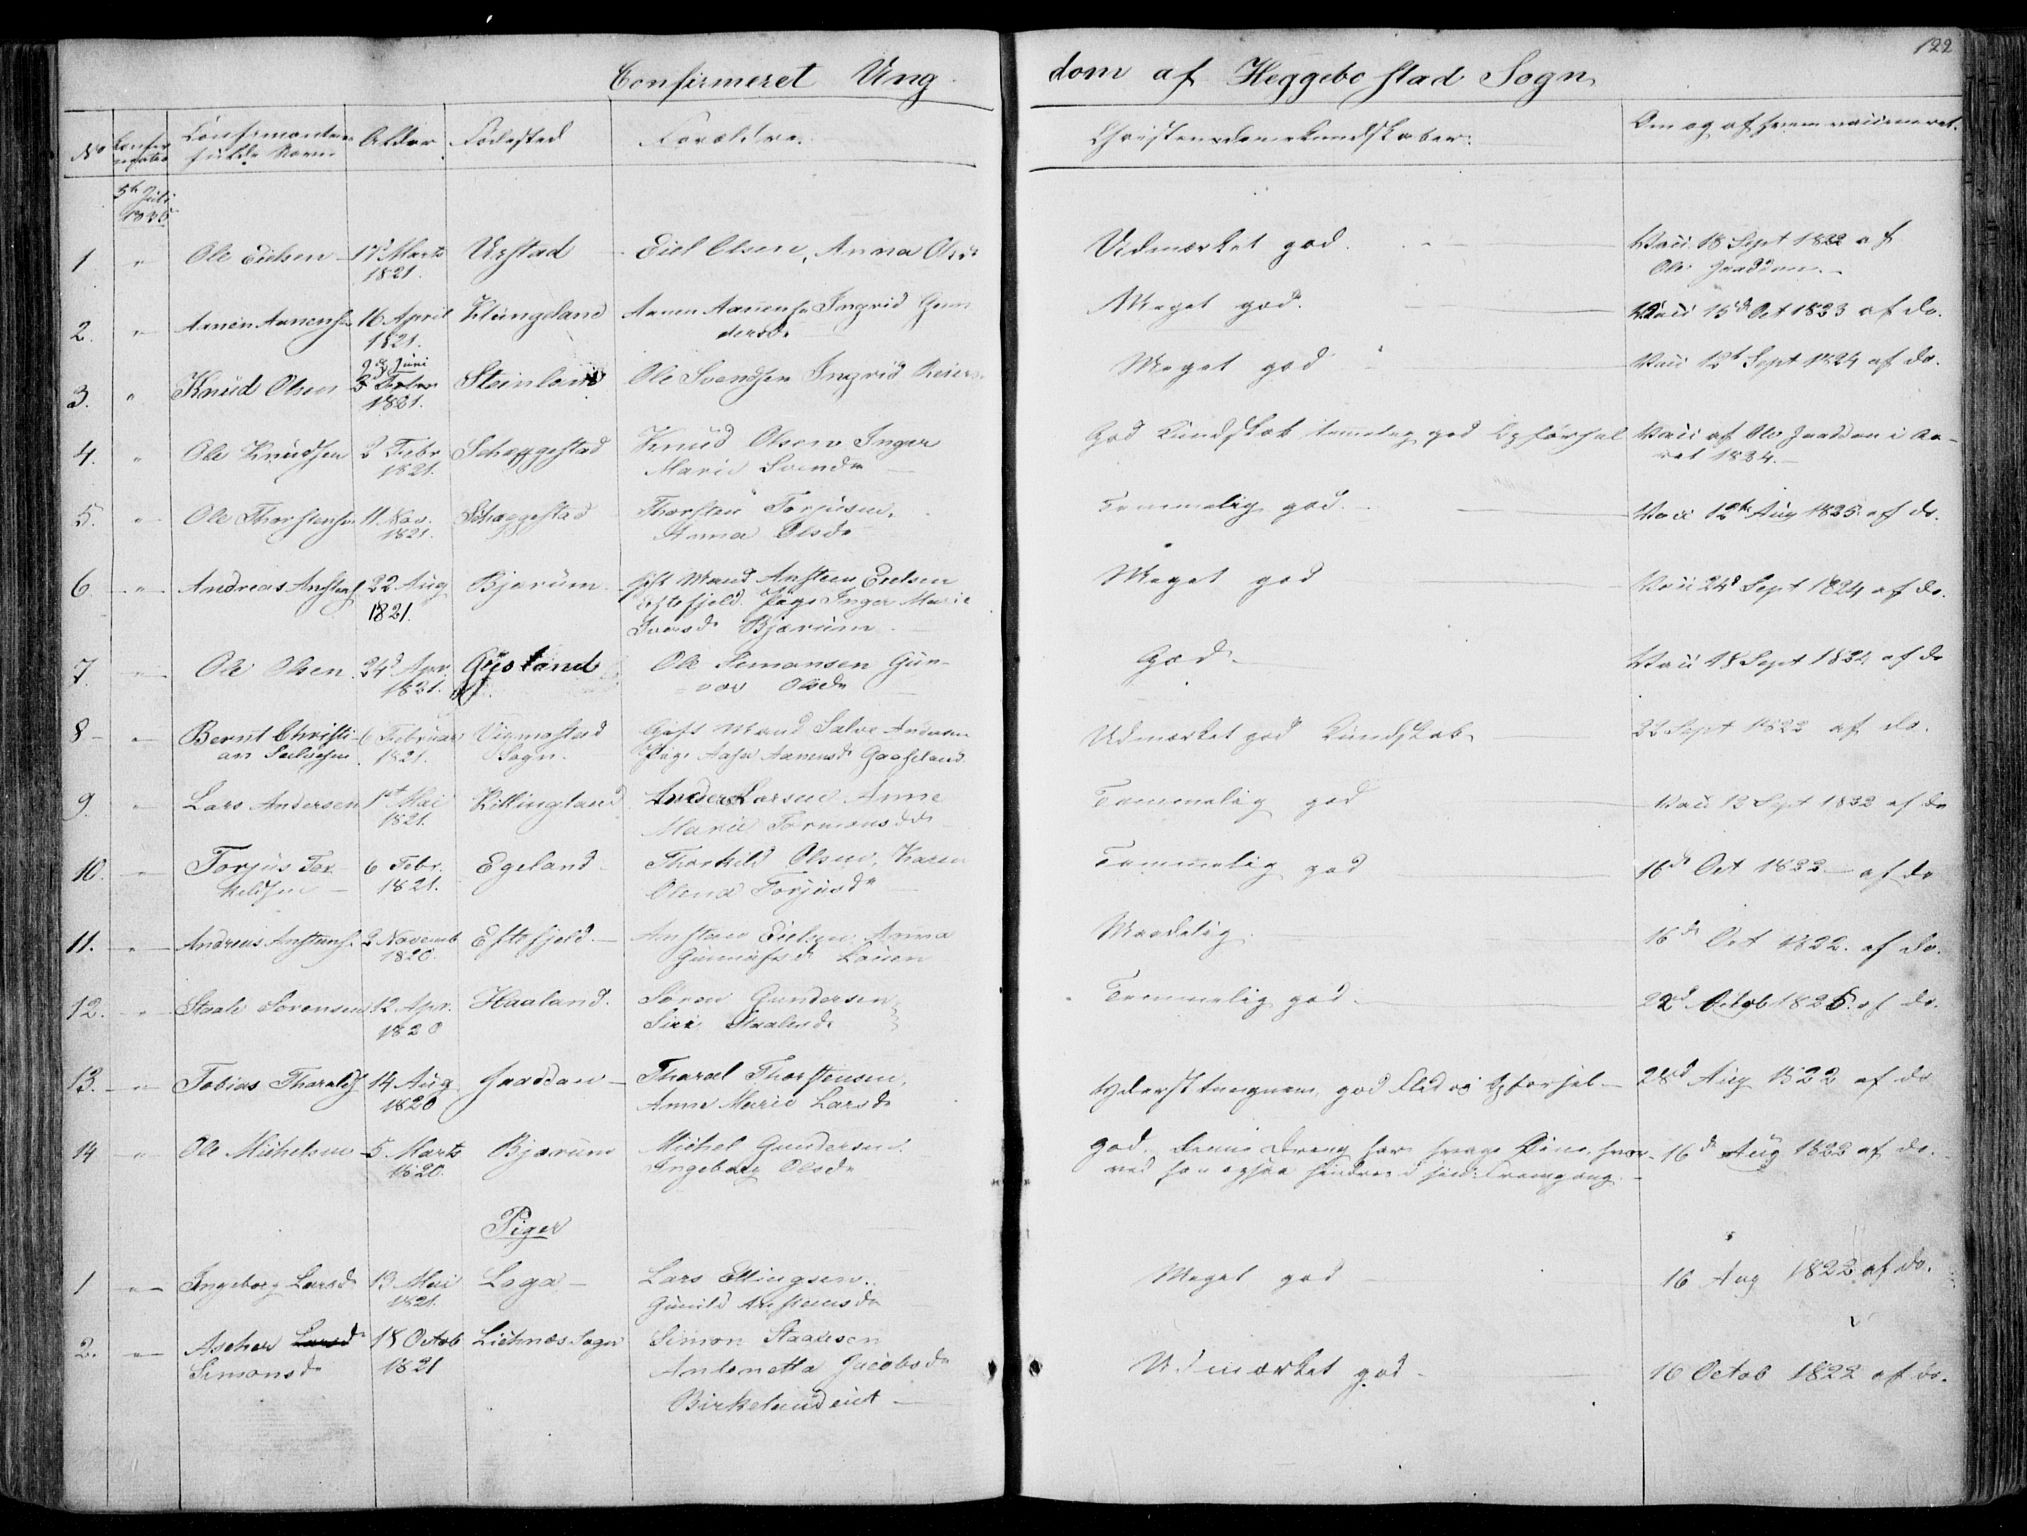 122
Confirmeret Ung dom af Heggebostad Sogn
No Confirmations Confirmantens fulde Navn Alder Fødested Forældre. Christendomskundskaber: Om og af hvem vaccineret.
5te Juli 1836
1 " Ole Eielsen 17d Marts 1821. Urstad Eiel Olsen, Anna Olsd. Udmærket god. Vacc 18 Sept 1822 af Ole Jaaddan.
2. " Aanen Aanensen 16 April 1821. Klungeland Aanen Aanensen Ingrid Gundersd. Meget god. Vacc 15d Oct 1823 af do.
3. " Knud Olsen 28 Juni 1821. Steinland Ole Svendsen Ingrid Reiers Meget god Vacc 12t Sept 1824 af do.
4. " Ole Knudsen 2 Febr 1821. Scheggestad Knud Olsen Inger Marie Svendsdr God Kundskab temmelig god Opførsel Vacc af Ole Jaaddan i Aaret 1834.
5. " Ole Thorstensen 11 Nov. 1821. Schaeggestad Thorsten Torjusen, Anna Olsdr Temmelig god. Vacc 12te Aug 1825. af do.
6 " Andreas Anstens 22 Aug 1821. Bjærum Gift Mand Ansteen Eielsen Eftefjeld Pige Inger Marie Iversdr Bjærum Meget god Vacc 24d Sept 1824 af do.
7 " Ole Olsen 24d Apr. 1821. Gysland Ole Simonsen Gunvor Olsdr God. Vacc 18 Sept 1822 af do
8 " Bernt Christian Salvesen 6 Februar 1821. Viemostad Sogn. Gift Mand Salve Andersen Pige Aase Aanensdr Gaaseland. Udmærket god Kundskab 22 Sept 1822 af do.
9. " Lars Andersen 1st Mai 1821. Killingland Anders Larsen Anne Marie Tormonsdr Temmelig god Vacc 13 Sept 1822 af do
10. " Torjus Torkeldsen 6 Febr. 1821. Egeland Thorkild Olsen, Karen Olena Torjusdr Temmelig god 16de Oct 1822 af do
11. " Andreas Anstensen 2 Novemb 1820. Eftefjeld. Ansten Eielsen Anna Gunulfsdr Lauen Maadelig. 16de Oct 1822. af do.
12. " Staale Sørensen 12 Apr. 1820 Haaland. Søren Gundersen, Siri Staalesdr Temmelig god. 22d Octob 1825. af do.
13. " Tobias Tharalds 14 Aug 1820 Jaaddan Tharal Thorstensen, Anne Marie Larsdr Yderst tungnem, god Flid og Opførsel 28d Aug 1822 af do
14 " Ole Michelsen 5 Marts 1820. Bjærum Michel Gundersen. Ingeborg Olsdr God. Denne Dreng har svage Øine, hvorved han ogsaa hindres i sin Fremgang. 16de Aug 1822 af do.
Piger
1 " Ingeborg Larsdr 13 Mai 1821. Loga Lars Ellingsen. Gunild Anstensdr Meget god 16 Aug 1822 af do.
2. " Ascher Larsdr Simonsdr 18 Octob 1821 Liehnæs Sogn Simon Staalesen Antonetta Jacobsdr Birkelund eiet Udmærket god. 16 Octob 1822 af do.